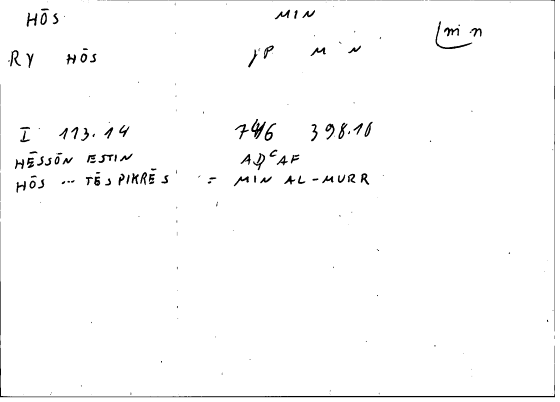 HŌS MIN min
RY HŌS JP M N
I 113.14 7416 398.10
HĒSSŌN ESTIN AḌᶜAF
HŌS ... TĒS PIKRĒS = MIN AL-MURR